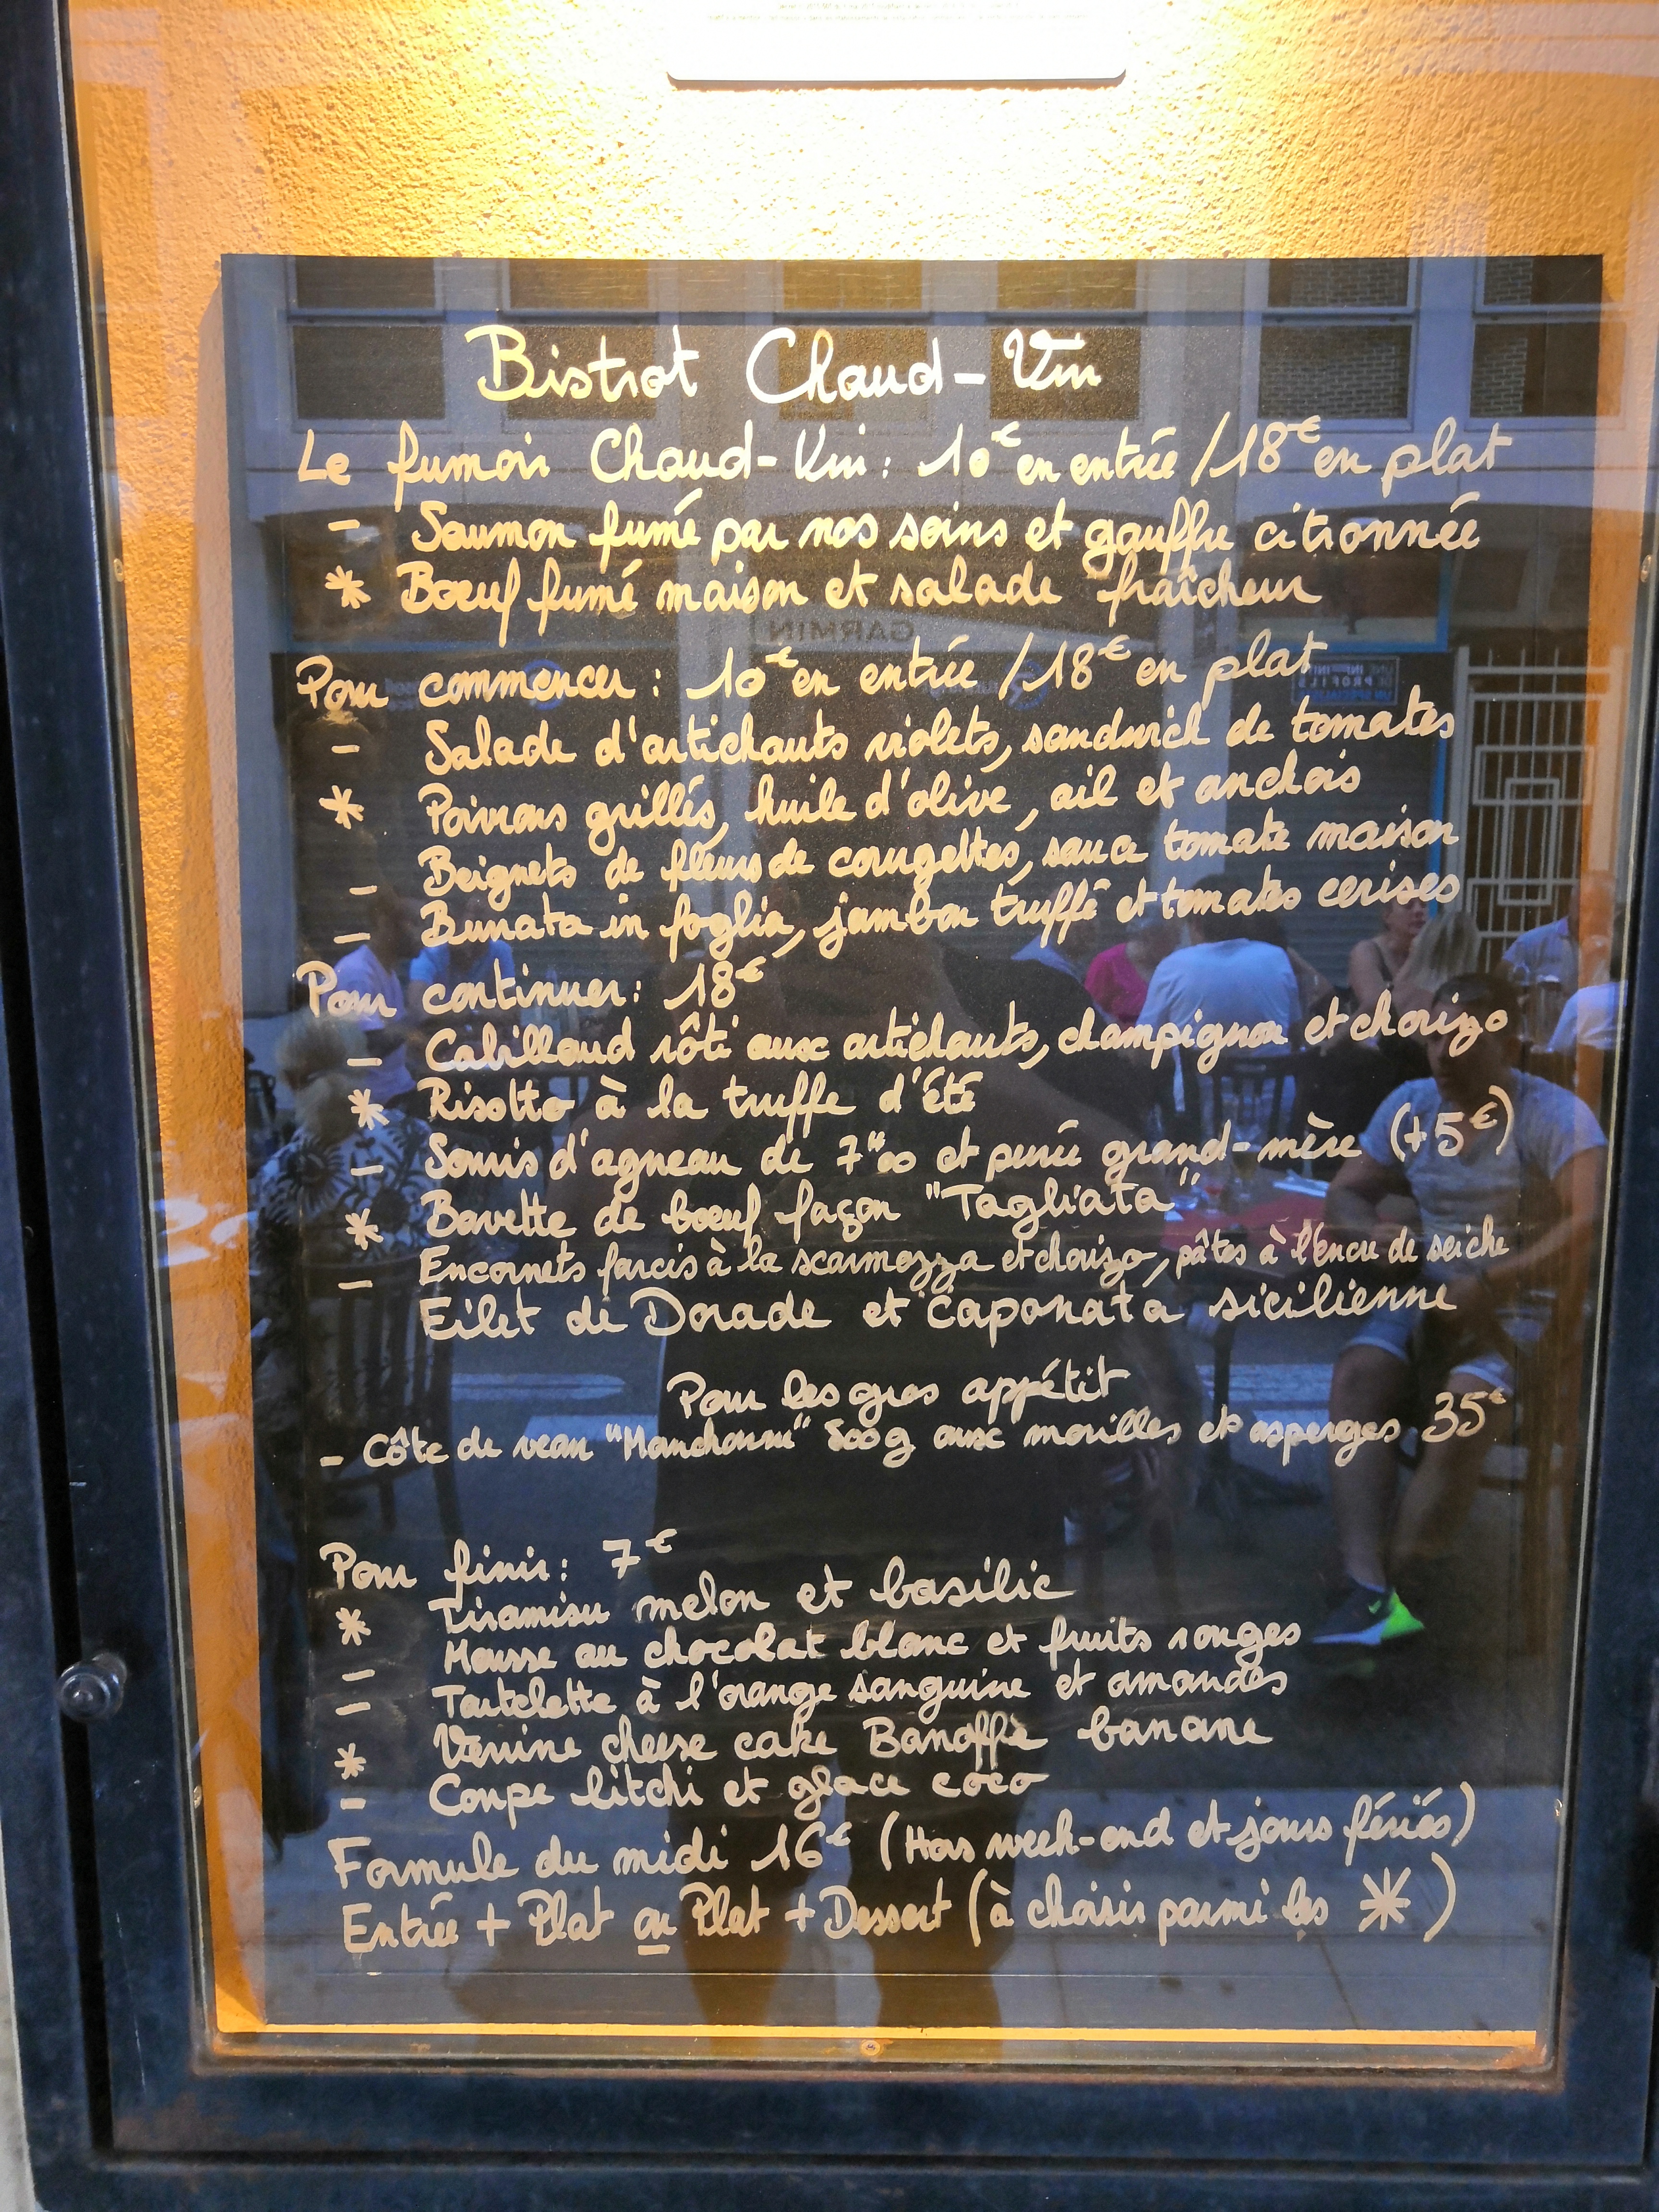 Bistrot Chaud-Vin
Le fumoir Chaud-Vin : 10€ en entrée / 18€ en plat
- Saumon fumé par nos soins et gauffre citronnée
* Bœuf fumé maison et salade fraîcheur
GARMIN
Pour commencer : 10€ en entrée / 18€ en plat
- Salade d'artichauts violets, sandwich de tomates
* Poivrons grillés, huile d'olive, ail et anchois
- Beignets de fleurs de courgettes, sauce tomate maison
- Burrata in foglia, jambon truffé et tomates cerises
Pour continuer : 18€
- Cabillaud rôti aux artichauts, champignon et chorizo
* Risotto à la truffe d'été
- Souris d'agneau de 7"00 et purée grand-mère (+5€)
* Bavette de bœuf façon "Tagliata"
- Encornets farcis à la scarmozza et chorizo, pâtes à l'encre de seiche
Filet de Dorade et Caponata sicilienne
Pour les gros appétit
- Côte de veau 500g aux morilles et asperges 35€
Pour finir : 7€
* Tiramisu melon et basilic
- Mousse au chocolat blanc et fruits rouges
- Tartelette à l'orange sanguine et amandes
* Verrine cheese cake Banoffè banane
- Coupe litchi et glace coco
Formule du midi 16€ (Hors week-end et jours fériés)
Entrée + Plat ou Plat + Dessert (à choisir parmi les *)